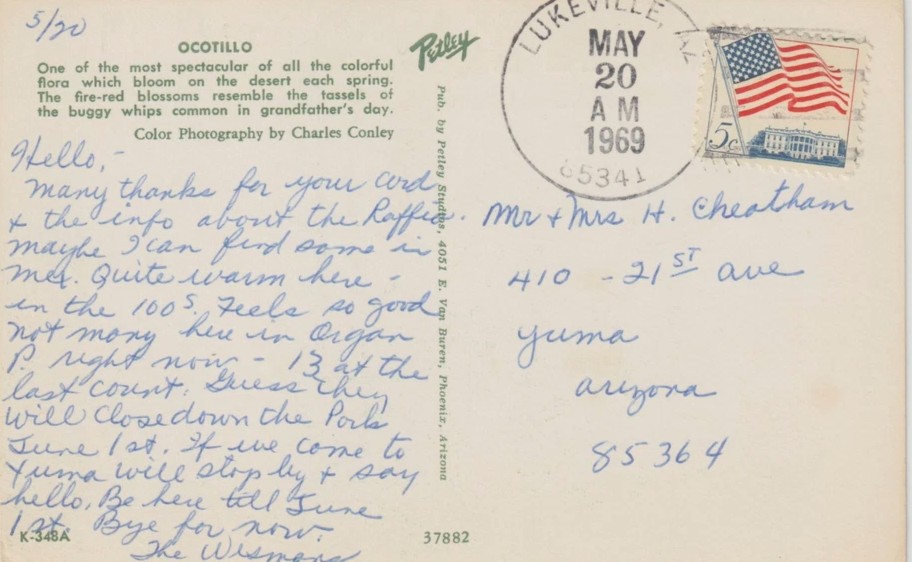 5/20
OCOTILLO
One of the most spectacular of all the colorful
flora which bloom on the desert each spring.
The fire-red blossoms resemble the tassels of
the buggy whips common in grandfather's day.
Color Photography by Charles Conley
Hello,-
Many thanks for your card
& the info about the Raffia.
maybe I can find some in
Mex. Quite warm here -
in the 100s. Feels so good
not many here in Organ
P. right now - 13 at the
last count. Guess they
will close down the Park
June 1st. If we come to
Yuma will stop by & say
hello. Be here till June
1st. Bye for now.
The Wismans
K-348A
Petley
Pub. by Petley Studios, 4051 E. Van Buren, Phoenix, Arizona
37882
LUKEVILLE, AZ
MAY
20
AM
1969
85341
5c
Mr & Mrs H. Cheatham
410 - 21ST ave
Yuma
arizona
85364